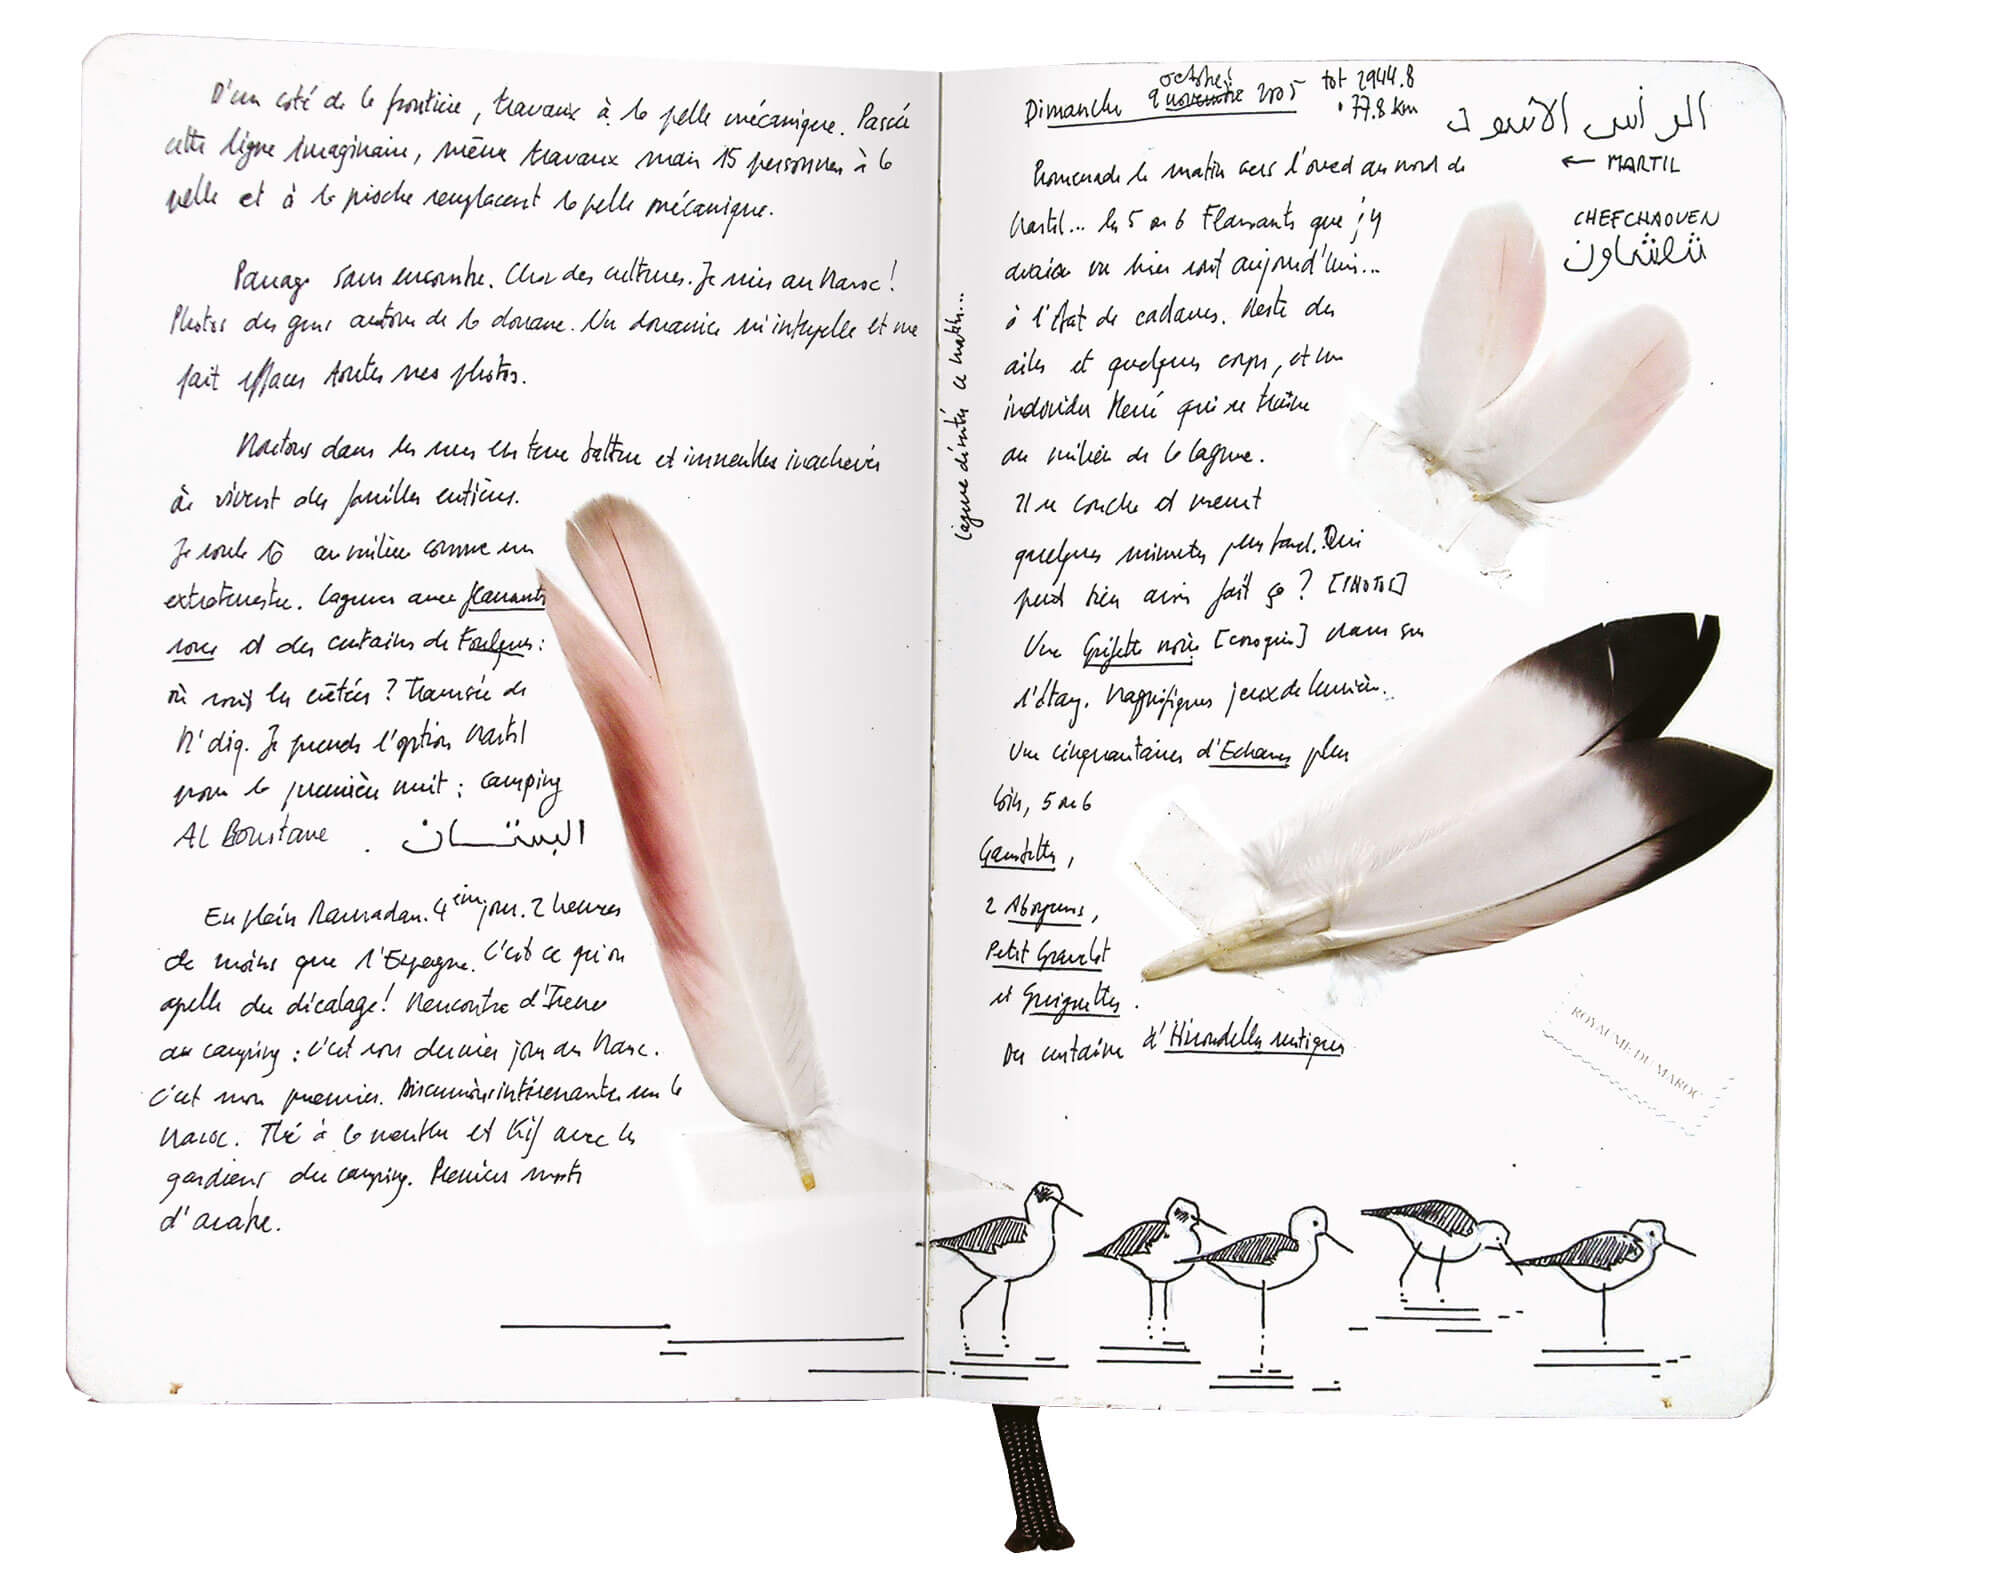 D'un coté de la frontière, travaux à la pelle mécanique. Passée
cette ligne imaginaire, même travaux mais 15 personnes à la
pelle et à la pioche remplacent la pelle mécanique.
Passage sans encombre. Choc des cultures. Je suis au Maroc!
Photos des gens autour de la douane. Un douanier m'interpelle et me
fait effacer toutes mes photos.
dans les rues en terre battue et immeubles inachevés
où vivent des familles entières.
Je roule là au milieu comme un
extraterrestre. Lagunes avec flamants
roses et des centaines de Foulques:
où sont les crêtées? Traversée de
M'diq. Je prends l'option Martil
pour la première nuit: camping
AL Boustane . البستان
En plein Ramadan. 4ème jour. 2 heures
de moins que l'Espagne. C'est ce qu'on
apelle du décalage! Rencontre d'Irene
au camping: c'est son dernier jour au Maroc.
C'est mon premier. Discussions intéressantes sur le
Maroc. Thé à la menthe et Kif avec les
gardiens du camping. Premiers mots
d'arabe.
Lagune de Smir, ce matin...
Dimanche 9 octobre novembre 2005 tot 2944.8
• 77.8 km
الرأس الأسود
← MARTIL
CHEFCHAOUEN
شفشاون
Promenade le matin vers l'oued au nord de
Martil... les 5 ou 6 Flamants que j'y
avais vu hier sont aujourd'hui...
à l'état de cadavres. Reste des
ailes et quelques corps, et un
individu blessé qui se traîne
au milieu de la lagune.
Il se couche et meurt
quelques minutes plus tard. Qui
peut bien avoir fait ça? [PHOTOS]
Une Guifette noire [croquis] chasse sur
l'étang. Magnifiques jeux de lumière..
Une cinquantaine d'Echasses plus
loin, 5 ou 6
Gambettes,
2 Aboyeurs,
Petit Gravelot
et Guignettes.
Des centaine d'Hirondelles rustiques
ROYAUME DU MAROC